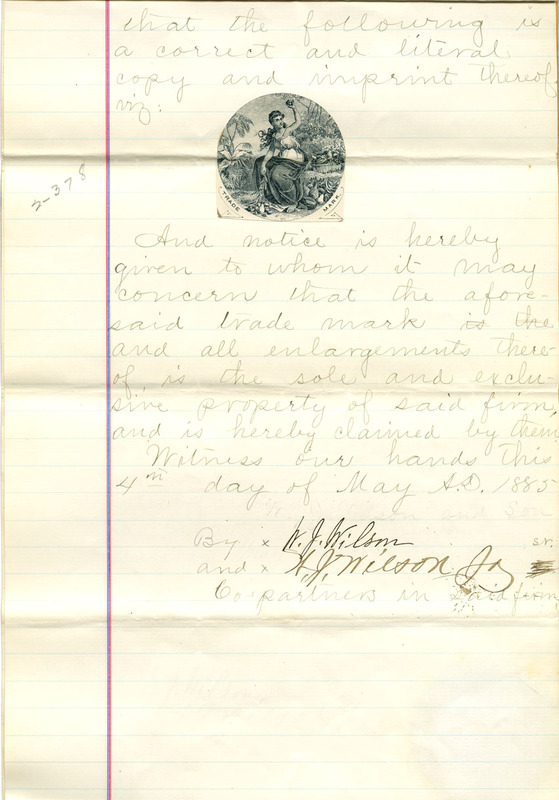 that the following is
a correct and literal
copy and imprint thereof
viz:
TRADE MARK
2-378
And notice is hereby
given to whom it may
concern that the afore-
said trade mark is the
and all enlargements there-
of, is the sole and exclu-
sive property of said firm,
and is hereby claimed by them
Witness our hands this
4th day of May A.D. 1885
and Son
By x W. J. Wilson sr.
and x W. J. Wilson Jr
Co-partners in said firm